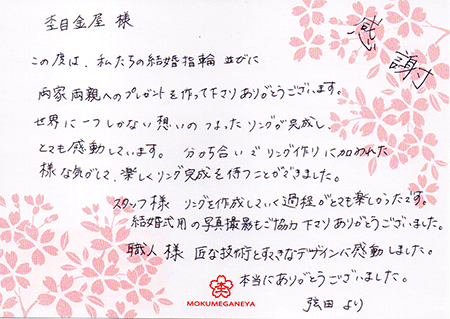 杢目金屋 様
感謝
この度は、私たちの結婚指輪 並びに
両家両親へのプレゼントを作って下さりありがとうございます。
世界に一つしかない想いのつまったリングが完成し、
とても感動しています。 分かち合いでリング作りに加われた
様な気がして、楽しくリング完成を待つことができました。
スタッフ様 リングを作成していく過程がとても楽しかったです。
結婚式用の写真撮影もご協力下さりありがとうございました。
職人様 匠な技術とすてきなデザインに感動しました。
本当にありがとうございました。
弦田 より
MOKUMEGANEYA